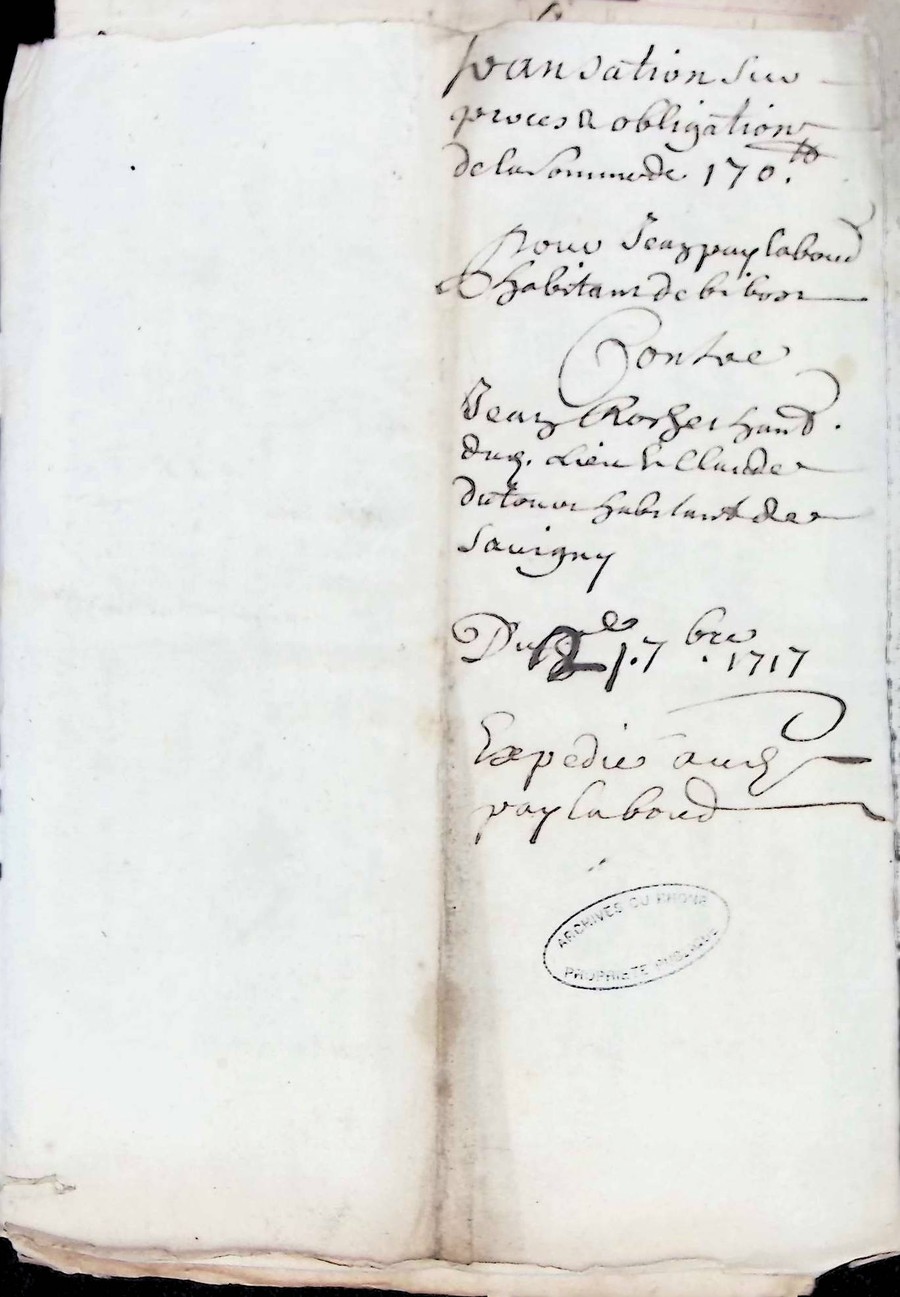 transation sur
proces & obligation
de la Somme de 170.tt
pour Jean puylaboud
habitant de bibost
Contre
Jean habt.
dud. lieu & Claude
Dutour habitant de
Savigny
Du 7 bre 1717
Expedié aud
puylaboud
ARCHIVES DU RHONE
PROPRIETE PUBLIQUE